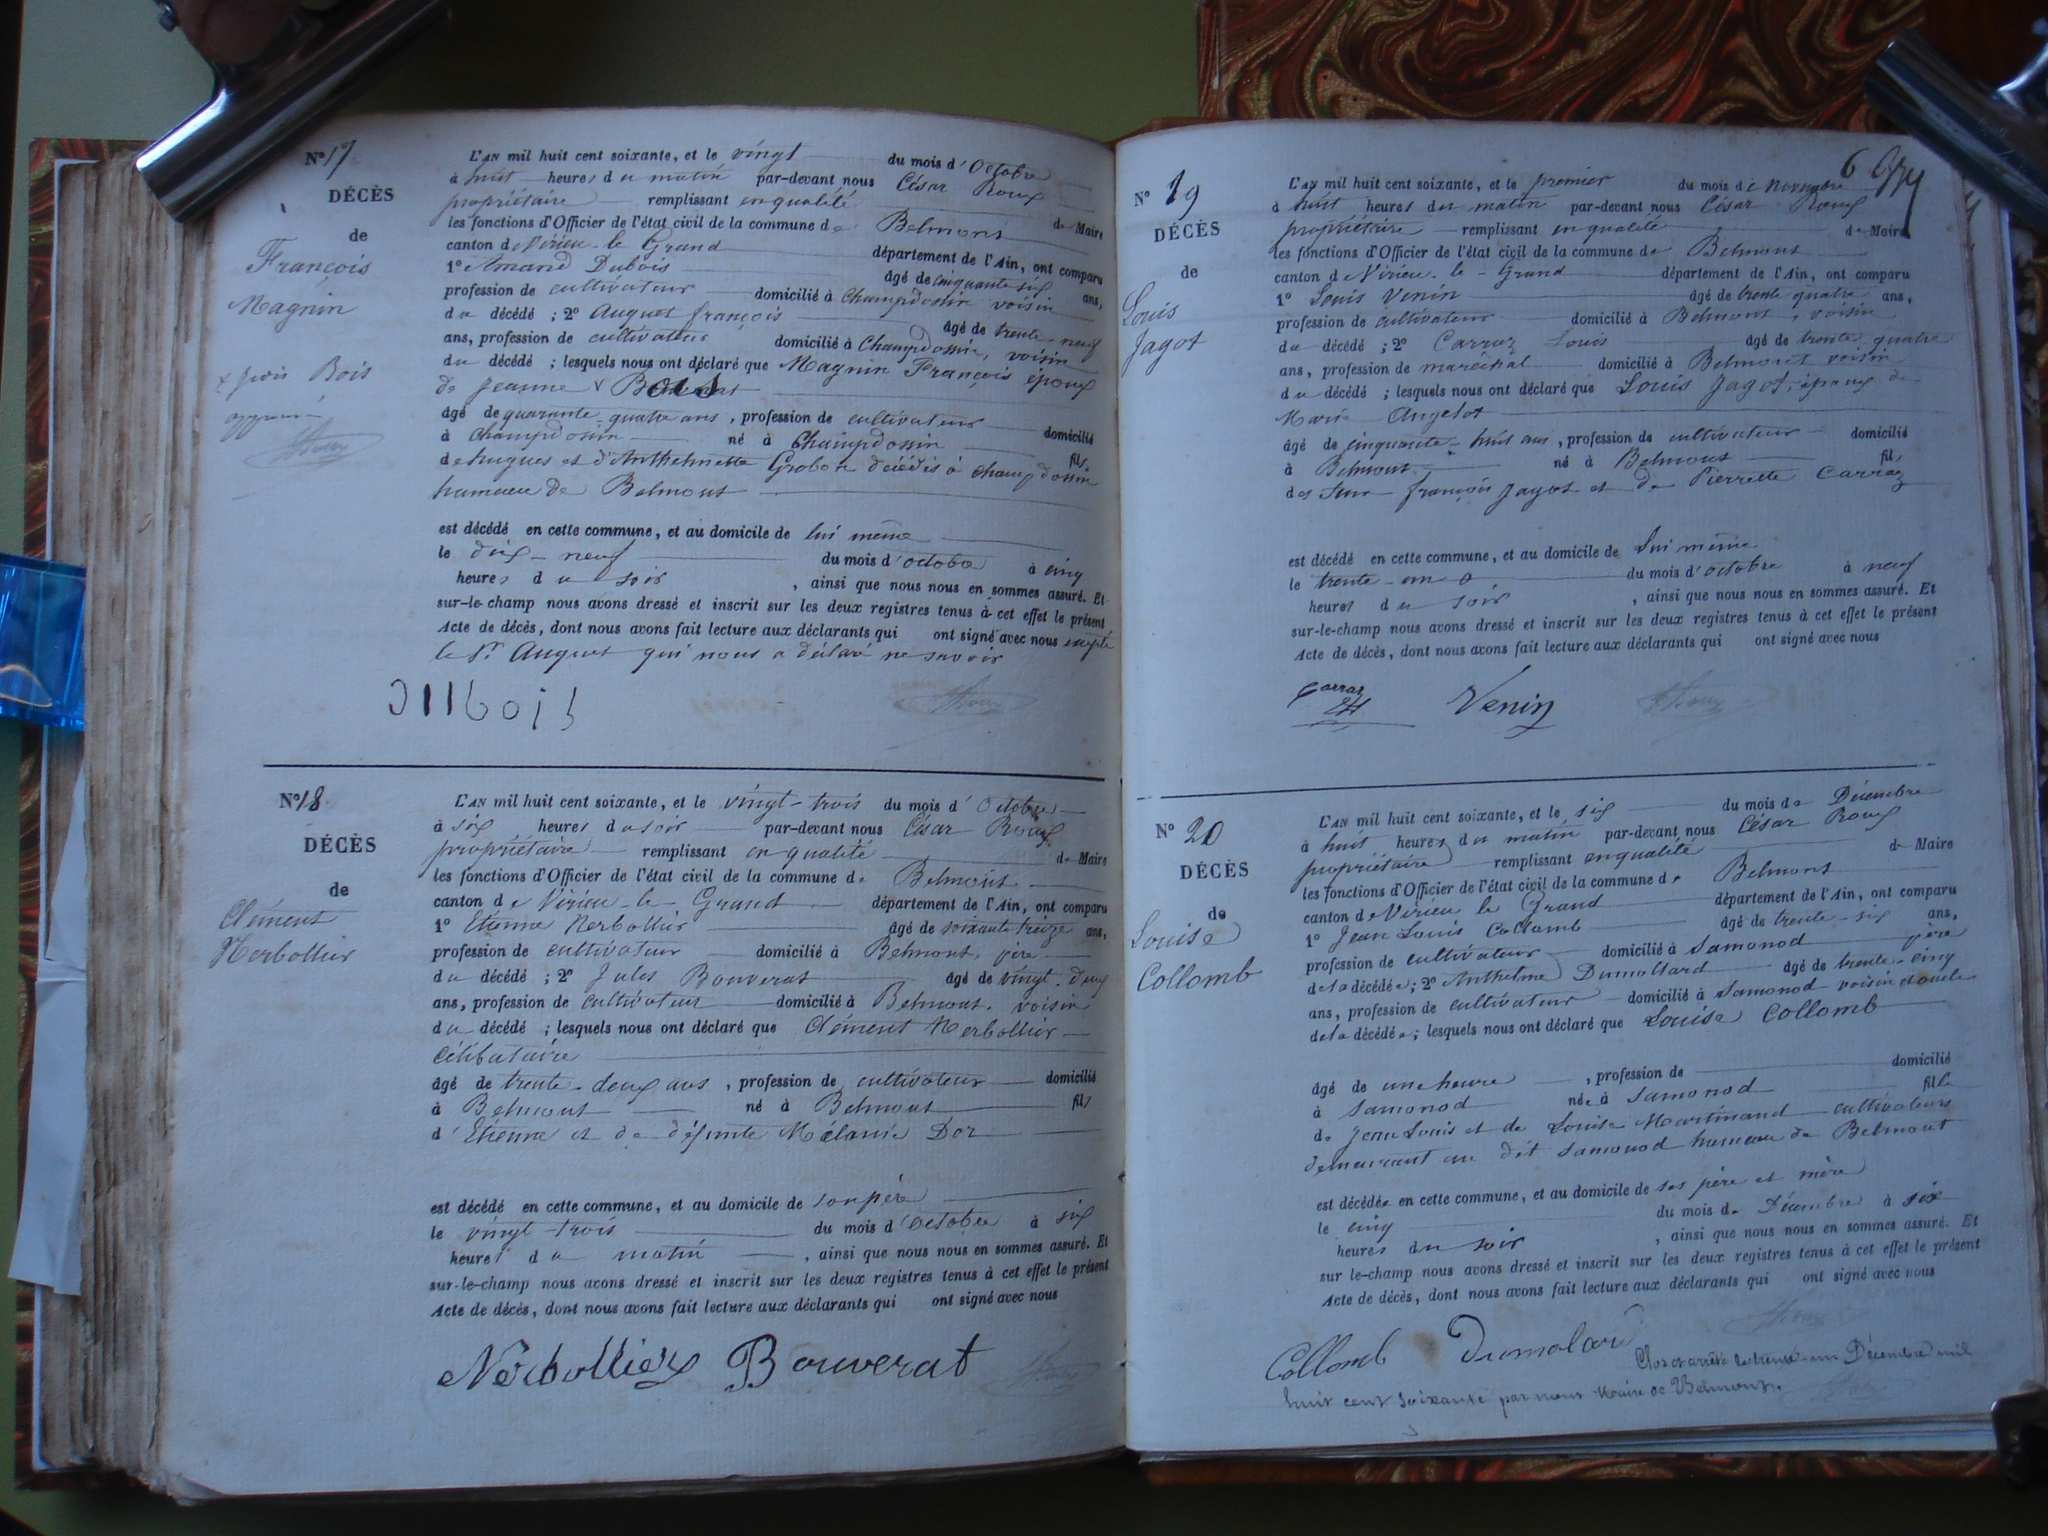 N° 17
DÉCÈS
de
François
Magnin
Bois
L'AN mil huit cent soixante, et le vingt du mois d'Octobre
à huit heures du matin par-devant nous César Roux
propriétaire remplissant en qualité de Maire
les fonctions d'Officier de l'état civil de la commune de Belmont
canton de Virieu-le Grand département de l'Ain, ont comparu
1° Amand Dubois âgé de cinquante six ans,
profession de cultivateur domicilié à Champdossin voisin
du décédé ; 2° Auguet françois âgé de trente-neuf
ans, profession de cultivateur domicilié à Champdossin, voisin
du décédé ; lesquels nous ont déclaré que Magnin François époux
de Jeanne
âgé de quarante quatre ans, profession de cultivateur domicilié
à Champdossin né à Champdossin fils
de hugues et d'Anthelmette Grobon décédés à Champdossin
hameau de Belmont
est décédé en cette commune, et au domicile de lui même
le dix-neuf du mois d'octobre à cinq
heures du soir, ainsi que nous nous en sommes assuré. Et
sur-le-champ nous avons dressé et inscrit sur les deux registres tenus à cet effet le présent
Acte de décès, dont nous avons fait lecture aux déclarants qui ont signé avec nous excepté
le Sr Auguet qui nous a déclaré ne savoir
Dubois
N° 18
DÉCÈS
de
Clément
Nerbollier
L'AN mil huit cent soixante, et le vingt-trois du mois d'Octobre
à six heures du soir par-devant nous César Roux
propriétaire remplissant en qualité de Maire
les fonctions d'Officier de l'état civil de la commune de Belmont
canton de Virieu-le Grand département de l'Ain, ont comparu
1° Etienne Nerbollier âgé de soixante treize ans,
profession de cultivateur domicilié à Belmont, père
du décédé ; 2° Jules Bouverat âgé de vingt-deux
ans, profession de cultivateur domicilié à Belmont, voisin
du décédé ; lesquels nous ont déclaré que Clément Nerbollier
célibataire
âgé de trente-deux ans, profession de cultivateur domicilié
à Belmont né à Belmont fils
d'Etienne et de défunte Mélanie Dor
est décédé en cette commune, et au domicile de son père
le vingt-trois du mois d'octobre à six
heures du matin, ainsi que nous nous en sommes assuré. Et
sur-le-champ nous avons dressé et inscrit sur les deux registres tenus à cet effet le présent
Acte de décès, dont nous avons fait lecture aux déclarants qui ont signé avec nous
Nerbollier Bouverat
6
N° 19
DÉCÈS
de
Louis
Jagot
L'AN mil huit cent soixante, et le premier du mois de Novembre
à huit heures du matin par-devant nous César Roux
propriétaire remplissant en qualité de Maire
les fonctions d'Officier de l'état civil de la commune de Belmont
canton de Virieu-le-Grand département de l'Ain, ont comparu
1° Louis Venin âgé de trente quatre ans,
profession de cultivateur domicilié à Belmont, voisin
du décédé ; 2° Carraz Louis âgé de trente quatre
ans, profession de maréchal domicilié à Belmont voisin
du décédé ; lesquels nous ont déclaré que Louis Jagot, époux de
Marie Angelot
âgé de cinquante-huit ans, profession de cultivateur domicilié
à Belmont né à Belmont fils
des feus françois Jagot et de Pierrette Carraz
est décédé en cette commune, et au domicile de lui même
le trente-un du mois d'octobre à neuf
heures du soir, ainsi que nous nous en sommes assuré. Et
sur-le-champ nous avons dressé et inscrit sur les deux registres tenus à cet effet le présent
Acte de décès, dont nous avons fait lecture aux déclarants qui ont signé avec nous
Carraz Venin
N° 20
DÉCÈS
de
Louise
Collomb
L'AN mil huit cent soixante, et le six du mois de Décembre
à huit heures du matin par-devant nous César Roux
propriétaire remplissant en qualité de Maire
les fonctions d'Officier de l'état civil de la commune de Belmont
canton de Virieu le Grand département de l'Ain, ont comparu
1° Jean Louis Collomb âgé de trente-six ans,
profession de cultivateur domicilié à Samonod père
de la décédée ; 2° Anthelme Dumollard âgé de trente-cinq
ans, profession de cultivateur domicilié à Samonod voisin et oncle
de la décédée ; lesquels nous ont déclaré que Louise Collomb
âgé de une heure, profession de domicilié
à Samonod née à Samonod fille
de Jean Louis et de Louise Martinand cultivateurs
demeurant au dit Samonod hameau de Belmont
est décédée en cette commune, et au domicile de ses père et mère
le cinq du mois de Décembre à six
heures du soir, ainsi que nous nous en sommes assuré. Et
sur le-champ nous avons dressé et inscrit sur les deux registres tenus à cet effet le présent
Acte de décès, dont nous avons fait lecture aux déclarants qui ont signé avec nous
Collomb Dumolard
Clos et arrêté le trente-un Décembre mil
huit cent soixante par nous Maire de Belmont.